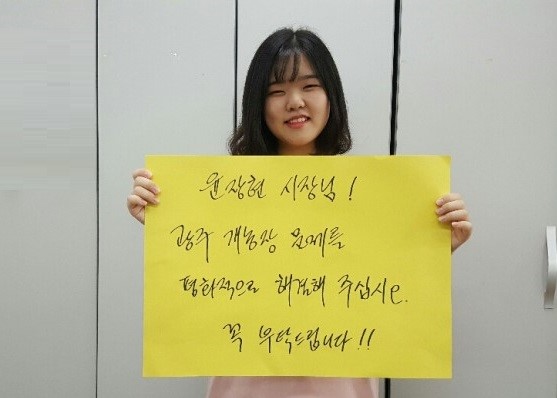 윤장현 시장님!
광주 개농장 문제를
평화적으로 해결해 주십시e.
꼭 부탁드립니다!!